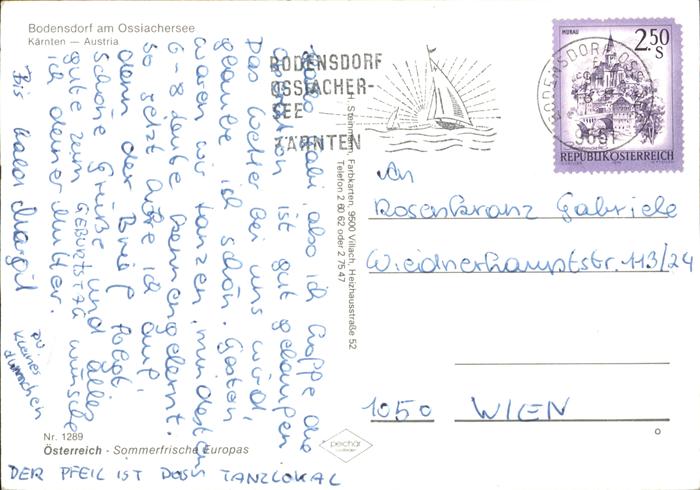 Bodensdorf am Ossiachersee
Kärnten — Austria
Hallo Gabi, also ich hoffe die
Operation ist gut gelaufen
das Wetter bei uns wird,
glaube ich schön. Gestern
waren wir tanzen, mindestens
6-8 Leute kennengelernt.
so jetzt höre ich auf
denn der Brief folgt,
schöne Grüße und alles
gute zum GEBURTSTAG wünsche
ich deiner Mutter.
Bis bald Margit
DU.
kleines
dummchen
Nr. 1289
Österreich - Sommerfrische Europas
DER PFEIL IST DAS TANZLOKAL
Steinmeir, Farbkarten, 9500 Villach, Heizhausstraße 52
Telefon 2 60 62 oder 2 75 47
peichär
BODENSDORF
OSSIACHER-
SEE
KÄRNTEN
MURAU
2.50
S
REPUBLIK ÖSTERREICH
An
Rosenkranz Gabriele
Wiednerhauptstr. 113/24
1050 WIEN